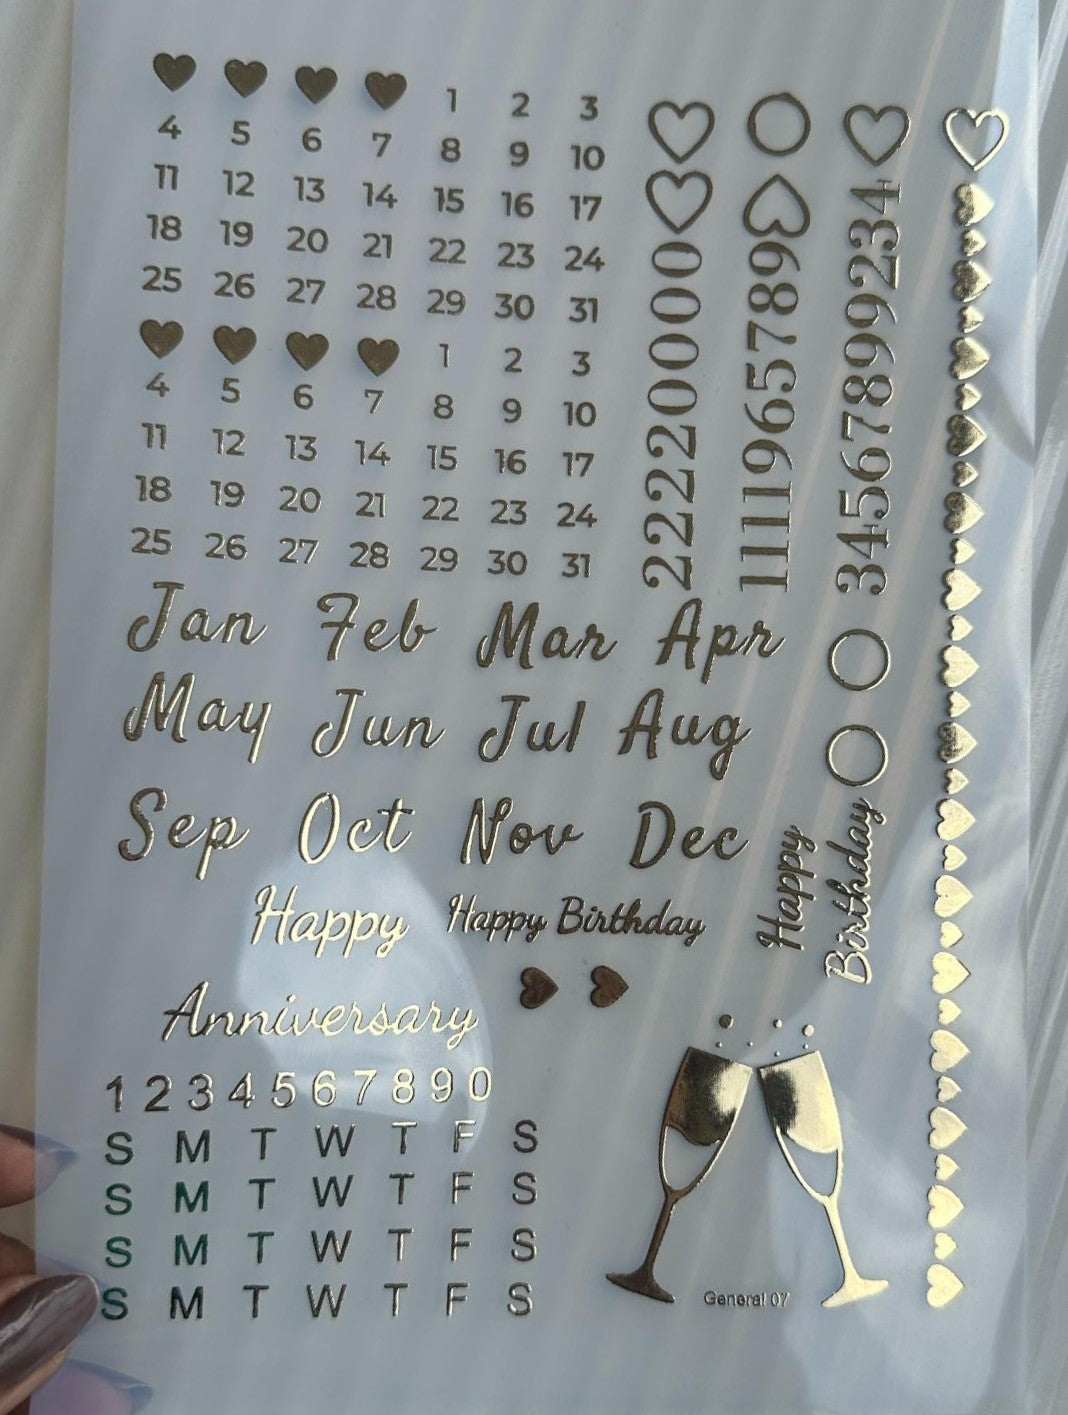 1 2 3
4 5 6 7 8 9 10
11 12 13 14 15 16 17
18 19 20 21 22 23 24
25 26 27 28 29 30 31
1 2 3
4 5 6 7 8 9 10
11 12 13 14 15 16 17
18 19 20 21 22 23 24
25 26 27 28 29 30 31
22220000
111965789
34567899234
Jan Feb Mar Apr
May Jun Jul Aug
Sep Oct Nov Dec
Happy
Birthday
Happy Happy Birthday
Anniversary
1 2 3 4 5 6 7 8 9 0
S M T W T F S
S M T W T F S
S M T W T F S
S M T W T F S
General 07